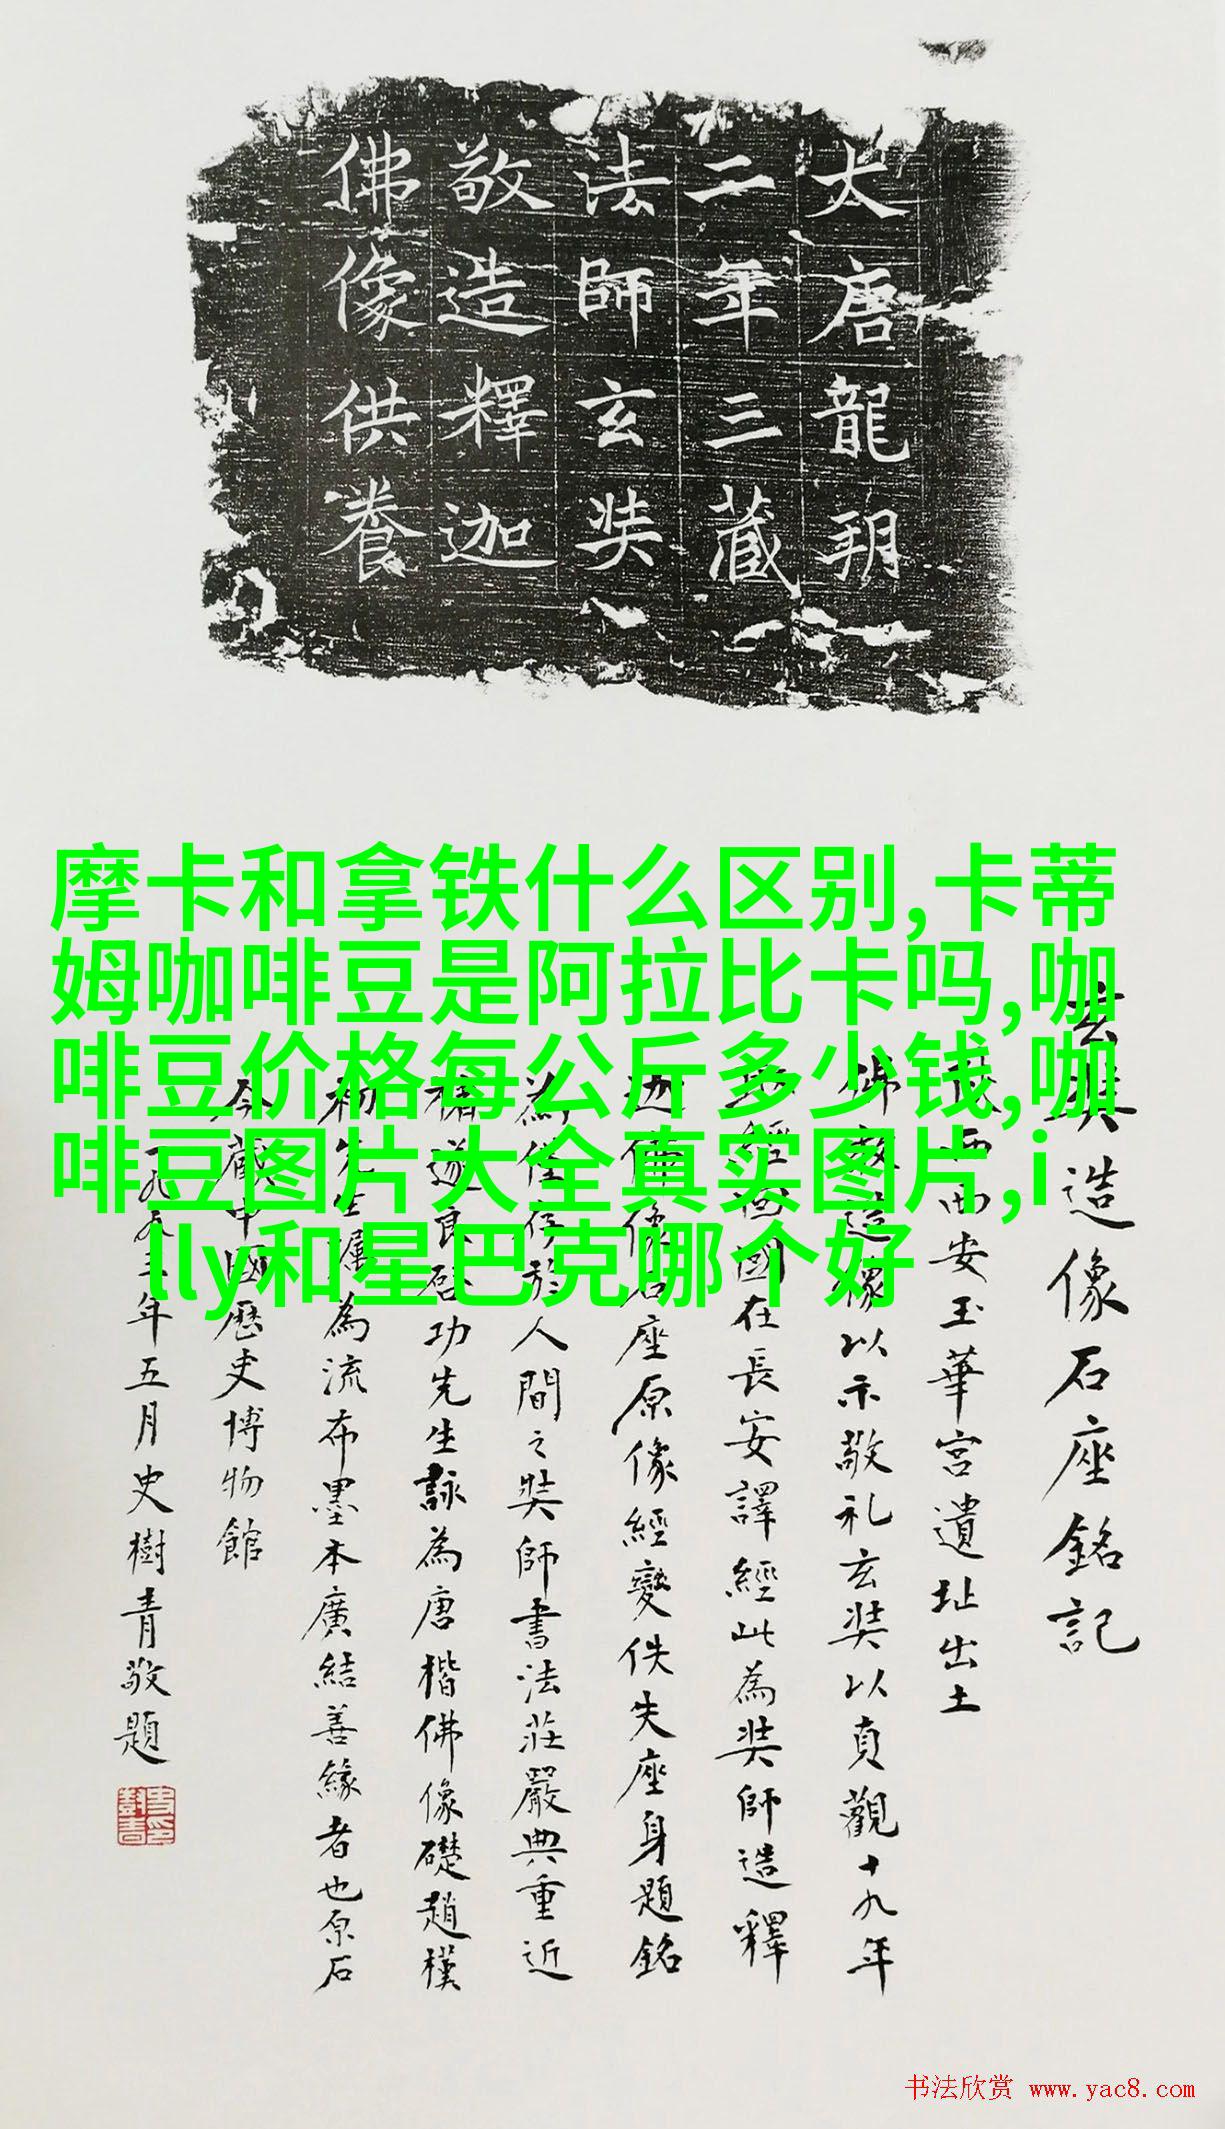 大唐龍朔
二年三藏
法師玄奘
敬造釋迦
佛像供養
摩卡和拿铁什么区别,卡蒂
姆咖啡豆是阿拉比卡吗,咖
啡豆价格每公斤多少钱,咖
啡豆图片大全真实图片,i
lly和星巴克哪个好
玄奘造像石座銘記
西安玉華宮遺址出土
佛教造像以示敬礼玄奘以貞觀十九年
經回國在長安譯經此為奘師造釋
迦佛像石座原像經變佚失座身題銘
為僅存於人間之奘師書法莊嚴典重近
褚遂良啓功先生詠為唐楷佛像礎趙樸
初先生為流布墨本廣結善緣者也原石
今藏中國歷史博物館
一九九三年五月史樹青敬題
书法欣赏 www.yac8.com